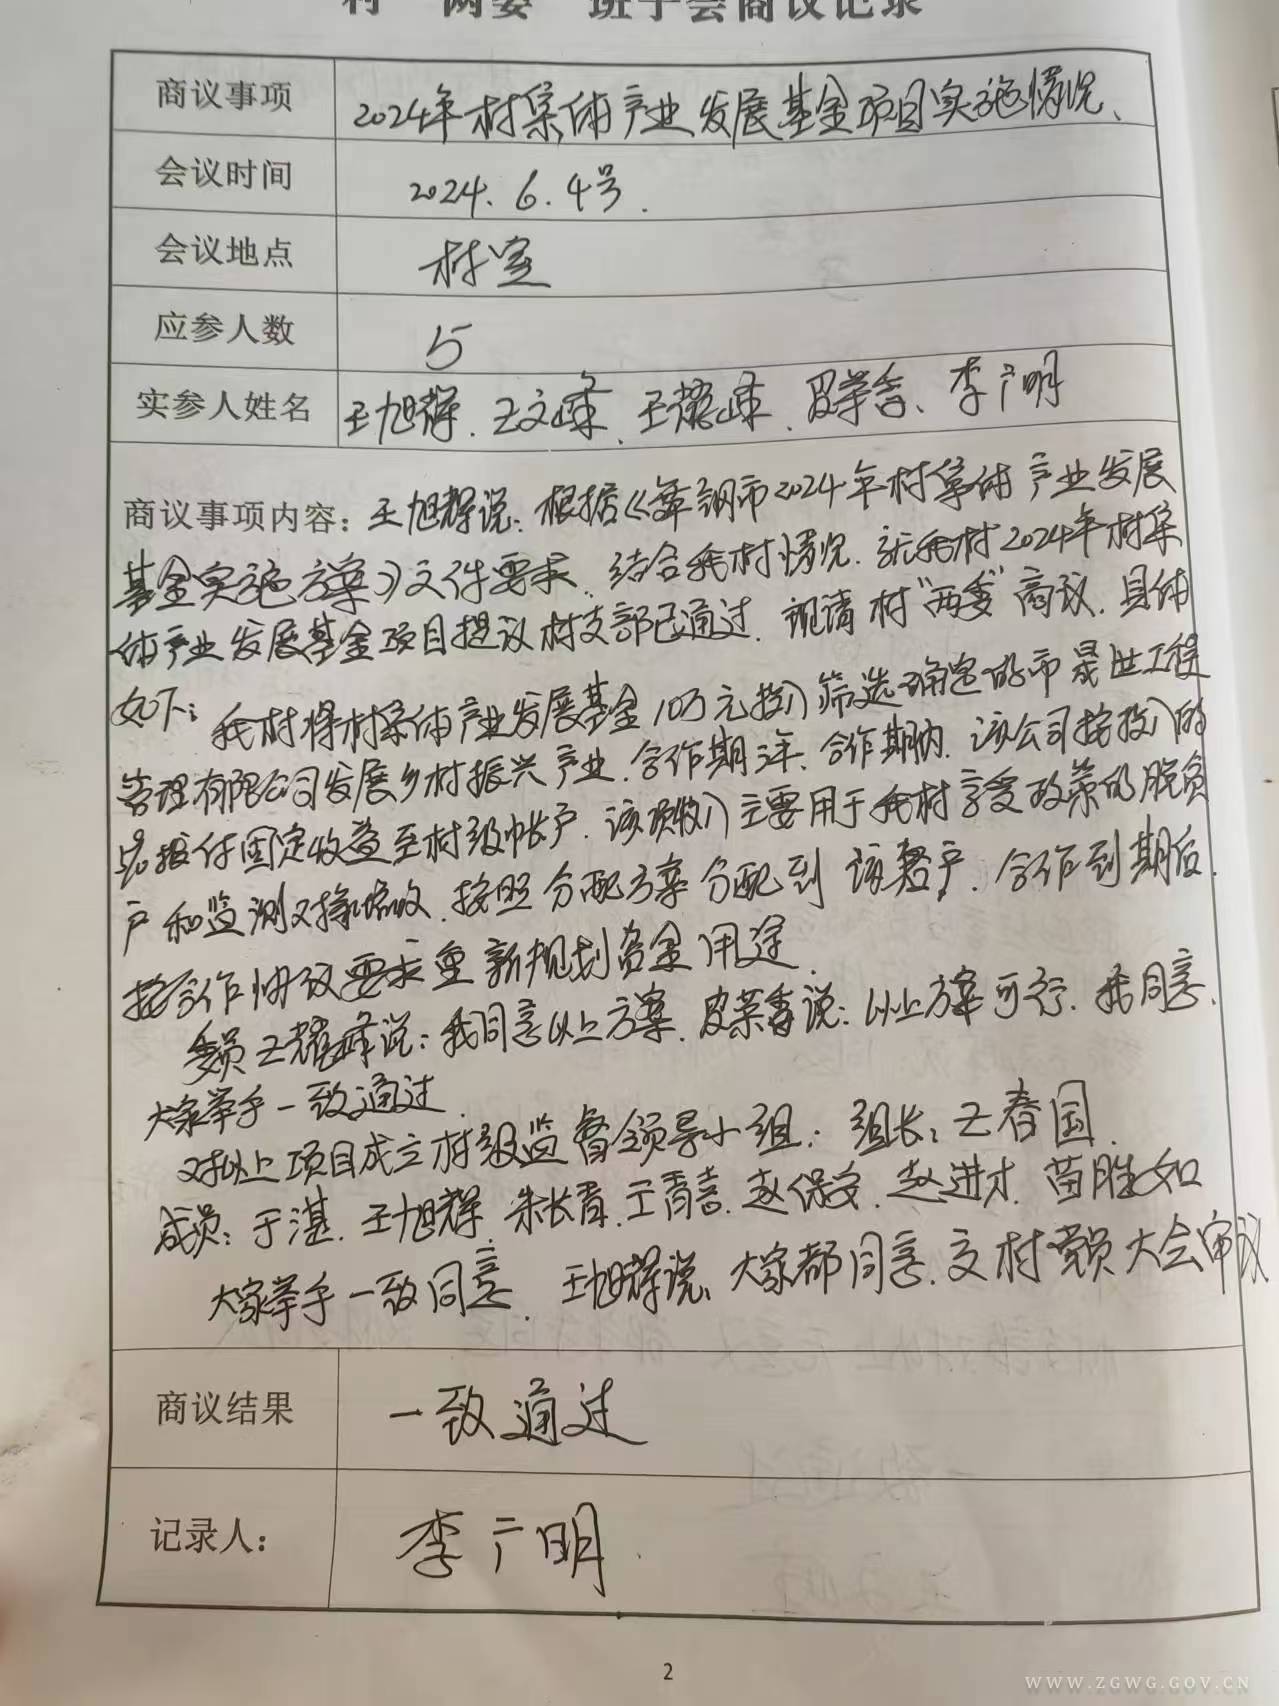 村“两委”班子会商议记录
商议事项 2024年村集体产业发展基金项目实施情况、
会议时间 2024.6.4号.
会议地点 村室
应参人数 5
实参人姓名 王旭辉、王文峰、王耀峰、皮荣香、李广明
商议事项内容：王旭辉说：根据《舞钢市2024年村集体产业发展
基金实施方案》文件要求、结合我村情况、就我村2024年村集
体产业发展基金项目提议村支部已通过、现请村“两委”商议、具体
如下：我村将村集体产业发展基金10万元投入筛选确定的市晟世工程
管理有限公司发展乡村振兴产业、合作期三年、合作期内、该公司按投入的
报付固定收益至村级帐户、该项收入主要用于我村享受政策的脱贫
户和监测对象、按照分配方案分配到该户、合作到期后、
按合作协议要求重新规划资金用途.
委员王耀峰说：我同意以上方案、皮荣香说：以上方案可行、我同意、
大家举手一致通过.
对以上项目成立村级监督领导小组：组长：王春国.
成员：于湛、王旭辉、朱长青、王青喜、赵保安、赵进才、苗胜如
大家举手一致同意、王旭辉说、大家都同意、交村党员大会审议
商议结果 一致通过
记录人： 李广明
2
WWW.ZGWG.GOV.CN